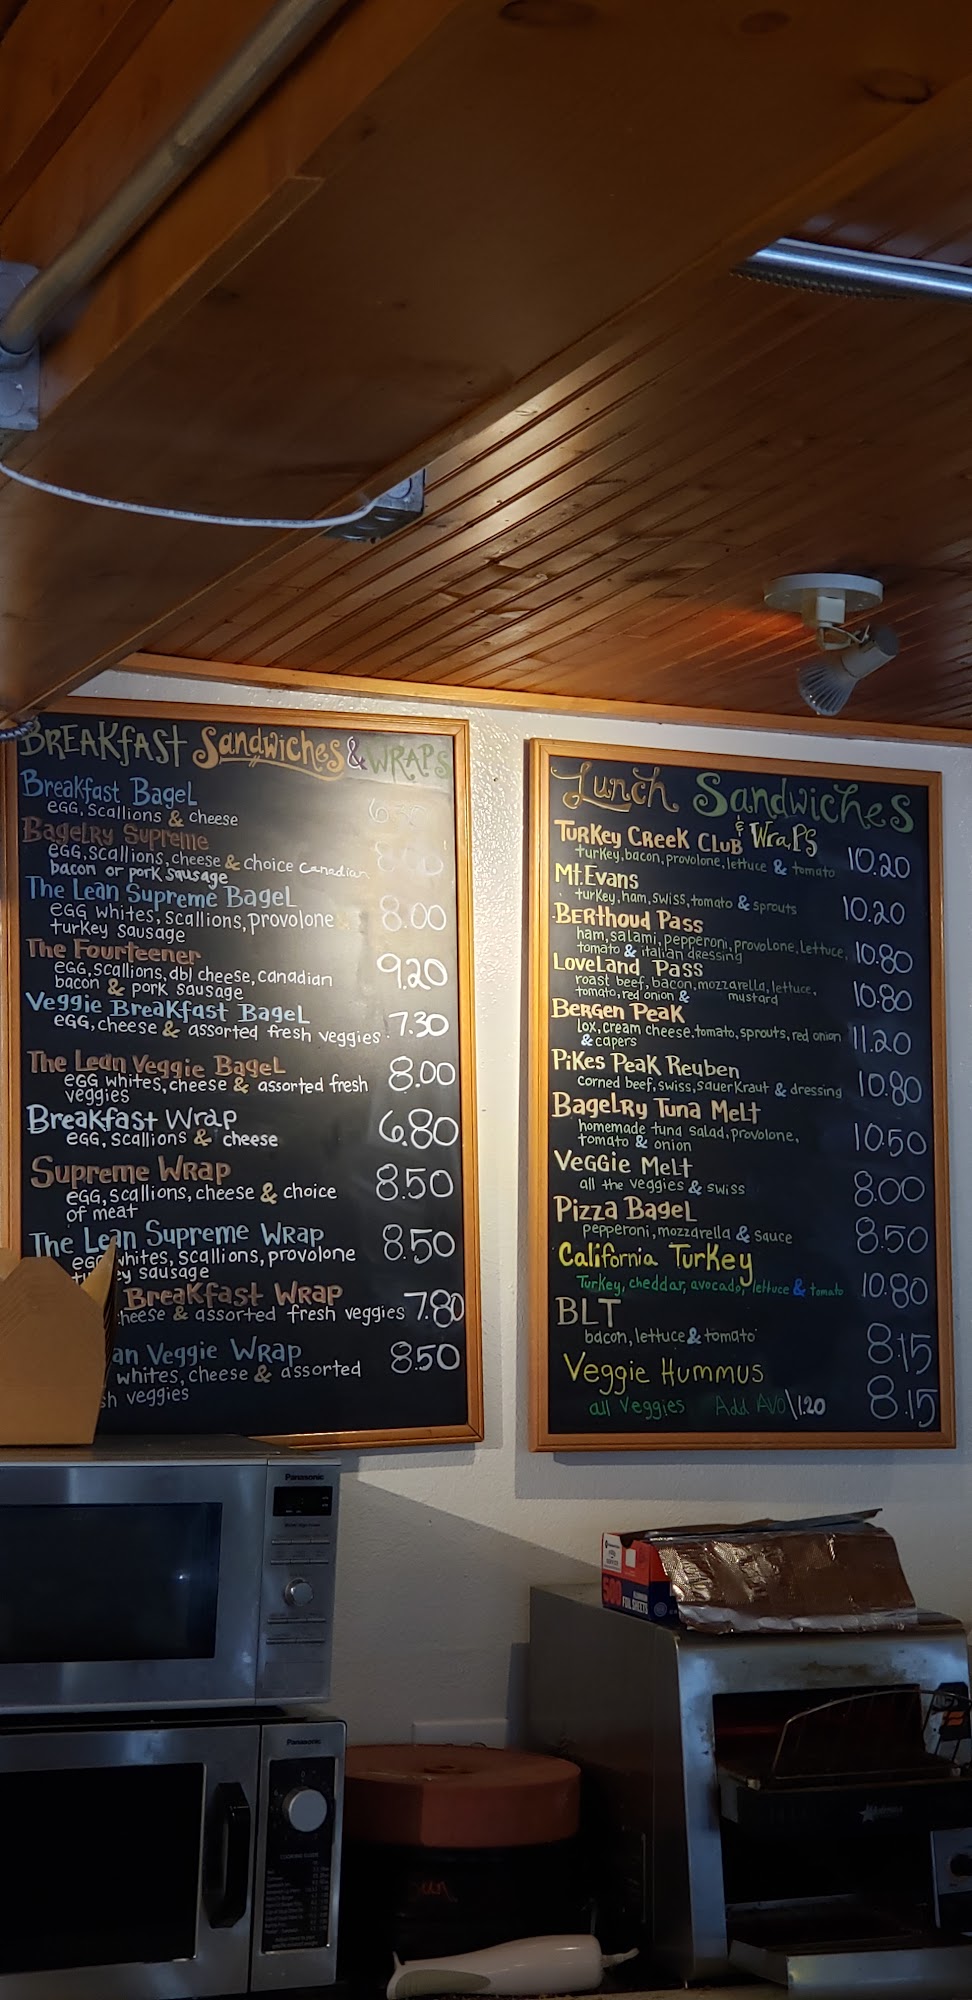 BREAKFAST Sandwiches & WRAPS
Breakfast Bagel
egg, scallions & cheese
Bagelry Supreme
egg, scallions, cheese & choice canadian
bacon or pork sausage
The Lean Supreme Bagel
egg whites, scallions, provolone 8.00
turkey sausage
The Fourteener 9.20
egg, scallions, dbl cheese, canadian
bacon & pork sausage
Veggie Breakfast Bagel 7.30
egg, cheese & assorted fresh veggies
The Lean Veggie Bagel 8.00
egg whites, cheese & assorted fresh
veggies
Breakfast Wrap 6.80
egg, scallions & cheese
Supreme Wrap 8.50
egg, scallions, cheese & choice
of meat
The Lean Supreme Wrap 8.50
egg whites, scallions, provolone
sausage
Breakfast Wrap 7.80
cheese & assorted fresh veggies
Veggie Wrap 8.50
whites, cheese & assorted
veggies
Lunch Sandwiches
& Wraps
Turkey Creek Club 10.20
turkey, bacon, provolone, lettuce & tomato
Mt. Evans 10.20
turkey, ham, swiss, tomato & sprouts
Berthoud Pass 10.80
ham, salami, pepperoni, provolone, lettuce,
tomato & italian dressing
Loveland Pass 10.80
roast beef, bacon, mozzarella, lettuce,
tomato, red onion & mustard
Bergen Peak 11.20
lox, cream cheese, tomato, sprouts, red onion
& capers
Pikes Peak Reuben 10.80
corned beef, swiss, sauerkraut & dressing
Bagelry Tuna Melt 10.50
homemade tuna salad, provolone,
tomato & onion
Veggie Melt 8.00
all the veggies & swiss
Pizza Bagel 8.50
pepperoni, mozzarella & sauce
California Turkey 10.80
Turkey, cheddar, avocado, lettuce & tomato
BLT 8.15
bacon, lettuce & tomato
Veggie Hummus 8.15
all veggies Add AVO \1.20
Panasonic
500
FOIL SHEETS
Panasonic
COOKING GUIDE